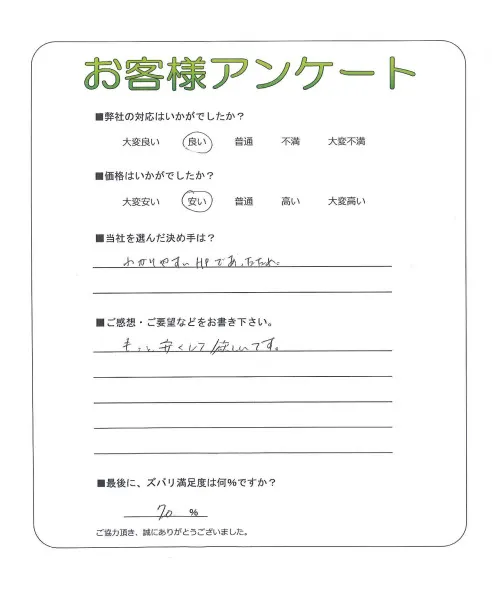 お客様アンケート
■弊社の対応はいかがでしたか？
大変良い 良い 普通 不満 大変不満
■価格はいかがでしたか？
大変安い 安い 普通 高い 大変高い
■当社を選んだ決め手は？
わかりやすいHPであったため。
■ご感想・ご要望などをお書き下さい。
もっと安くして欲しいです。
■最後に、ズバリ満足度は何%ですか？
70 %
ご協力頂き、誠にありがとうございました。